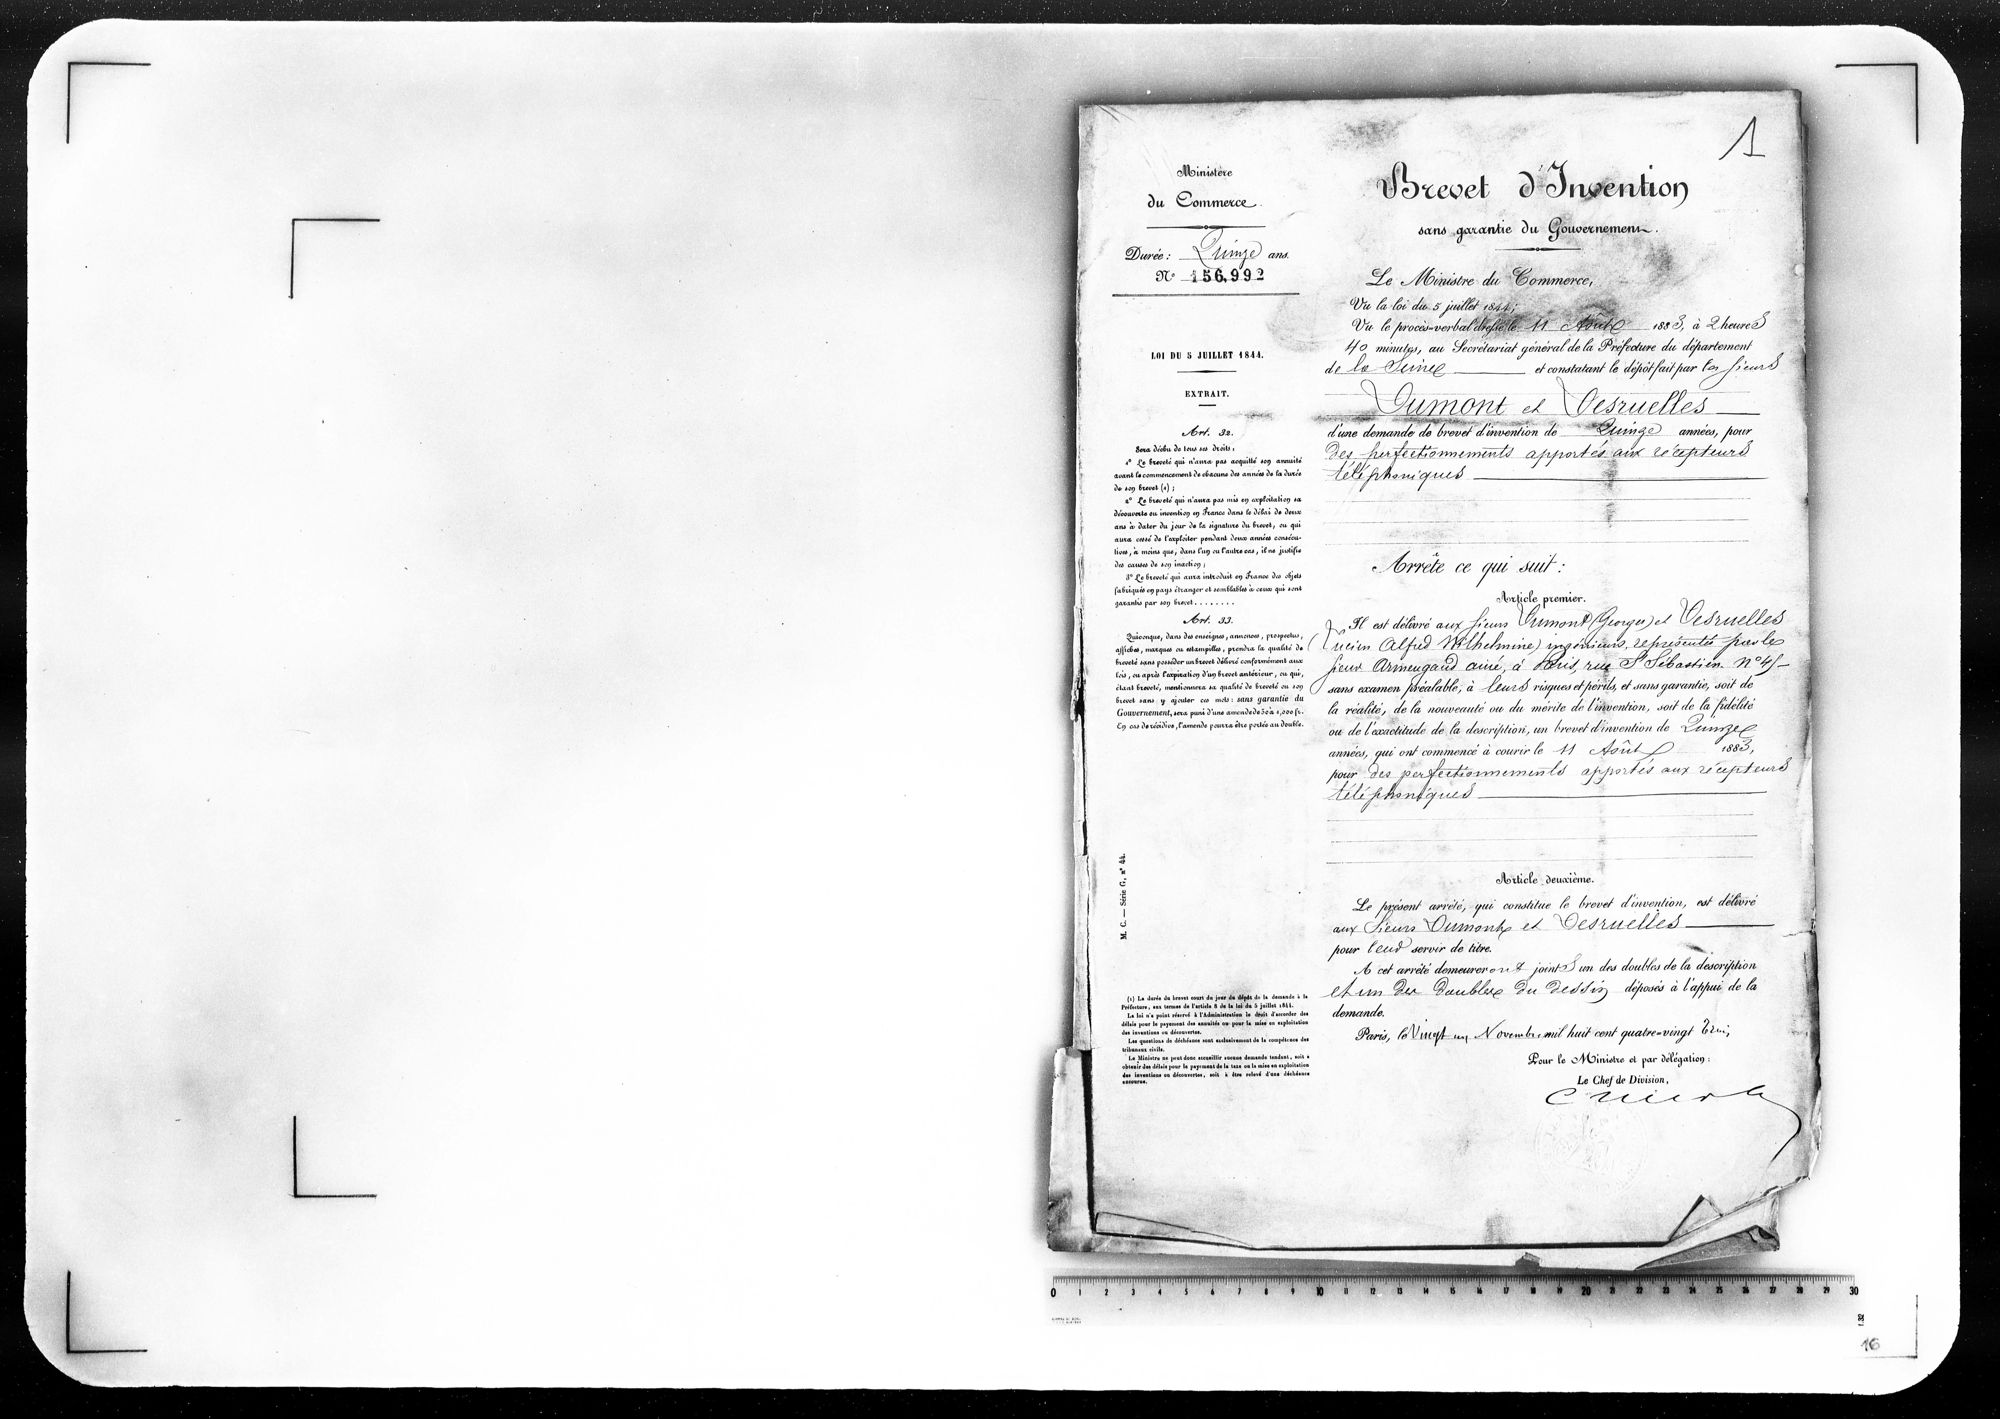 1
Ministère
du Commerce.
Durée : Quinze ans.
N° 156,992
LOI DU 5 JUILLET 1844.
EXTRAIT.
Art. 32.
Sera déchu de tous ses droits :
1° Le breveté qui n'aura pas acquitté son annuité
avant le commencement de chacune des années de la durée
de son brevet (1) ;
2° Le breveté qui n'aura pas mis en exploitation sa
découverte ou invention en France dans le délai de deux
ans à dater du jour de la signature du brevet, ou qui
aura cessé de l'exploiter pendant deux années consécu-
tives, à moins que, dans l'un ou l'autre cas, il ne justifie
des causes de son inaction ;
3° Le breveté qui aura introduit en France des objets
fabriqués en pays étranger et semblables à ceux qui sont
garantis par son brevet........
Art. 33.
Quiconque, dans des enseignes, annonces, prospectus,
affiches, marques ou estampilles, prendra la qualité de
breveté sans posséder un brevet délivré conformément aux
lois, ou après l'expiration d'un brevet antérieur, ou qui,
étant breveté, mentionnera sa qualité de breveté ou son
brevet sans y ajouter ces mots : sans garantie du
Gouvernement, sera puni d'une amende de 50 à 1,000 fr.
En cas de récidive, l'amende pourra être portée au double.
M. C. — Série G, n° 44.
(1) La durée du brevet court du jour du dépôt de la demande à la
Préfecture, aux termes de l'article 8 de la loi du 5 juillet 1844.
La loi n'a point réservé à l'Administration le droit d'accorder des
délais pour le payement des annuités ou pour la mise en exploitation
des inventions ou découvertes.
Les questions de déchéance sont exclusivement de la compétence des
tribunaux civils.
Le Ministre ne peut donc accueillir aucune demande tendant, soit à
obtenir des délais pour le payement de la taxe ou la mise en exploitation
des inventions ou découvertes, soit à être relevé d'une déchéance
encourue.
Brevet d'Invention
sans garantie du Gouvernement.
Le Ministre du Commerce,
Vu la loi du 5 juillet 1844 ;
Vu le procès-verbal dressé le 11 Août 1883, à 2 heures
40 minutes, au Secrétariat général de la Préfecture du département
de la Seine et constatant le dépôt fait par les sieurs
Dumont et Desruelles
d'une demande de brevet d'invention de Quinze années, pour
des perfectionnements apportés aux récepteurs
téléphoniques
Arrête ce qui suit :
Article premier.
Il est délivré aux sieurs Dumont (Georges) et Desruelles
(Lucien Alfred Wilhelmine) ingénieurs, représentés par le
sieur Armengaud ainé, à Paris, rue St Sébastien n° 45
sans examen préalable, à leurs risques et périls, et sans garantie, soit de
la réalité, de la nouveauté ou du mérite de l'invention, soit de la fidélité
ou de l'exactitude de la description, un brevet d'invention de Quinze
années, qui ont commencé à courir le 11 Août 1883,
pour des perfectionnements apportés aux récepteurs
téléphoniques
Article deuxième.
Le présent arrêté, qui constitue le brevet d'invention, est délivré
aux sieurs Dumont et Desruelles
pour leur servir de titre.
A cet arrêté demeureront joints un des doubles de la description
et un des doubles du dessin déposés à l'appui de la
demande.
Paris, le Vingt un Novembre mil huit cent quatre-vingt trois
Pour le Ministre et par délégation :
Le Chef de Division,
0 1 2 3 4 5 6 7 8 9 10 11 12 13 14 15 16 17 18 19 20 21 22 23 24 25 26 27 28 29 30
16